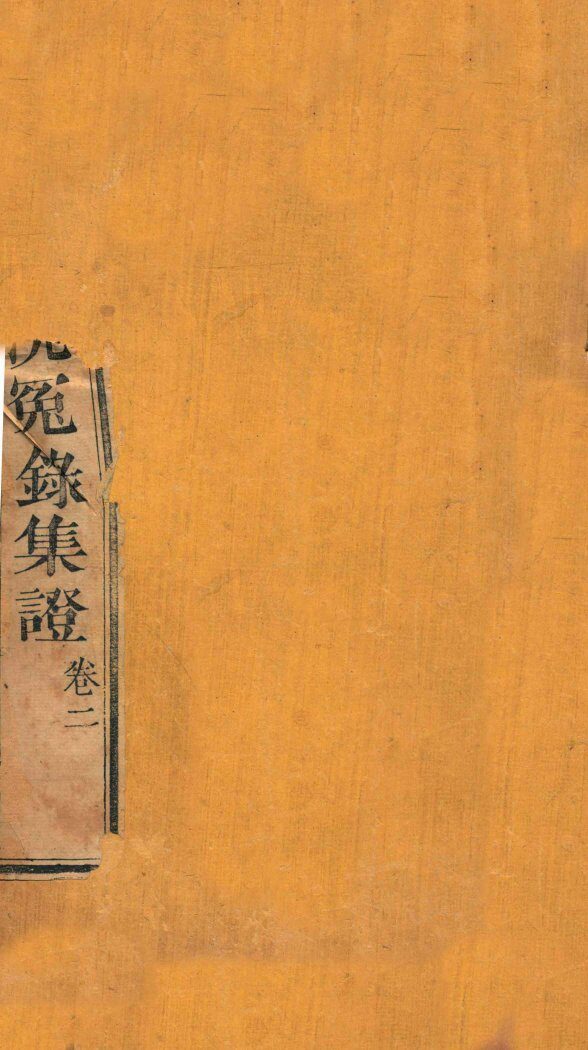 洗冤錄集證
卷二